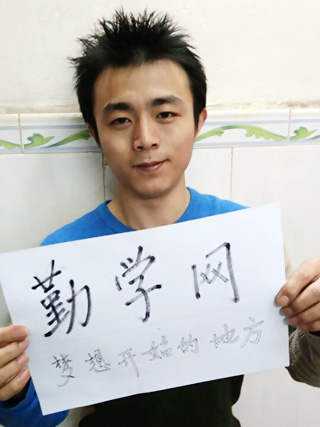 勤学网
梦想开始的地方